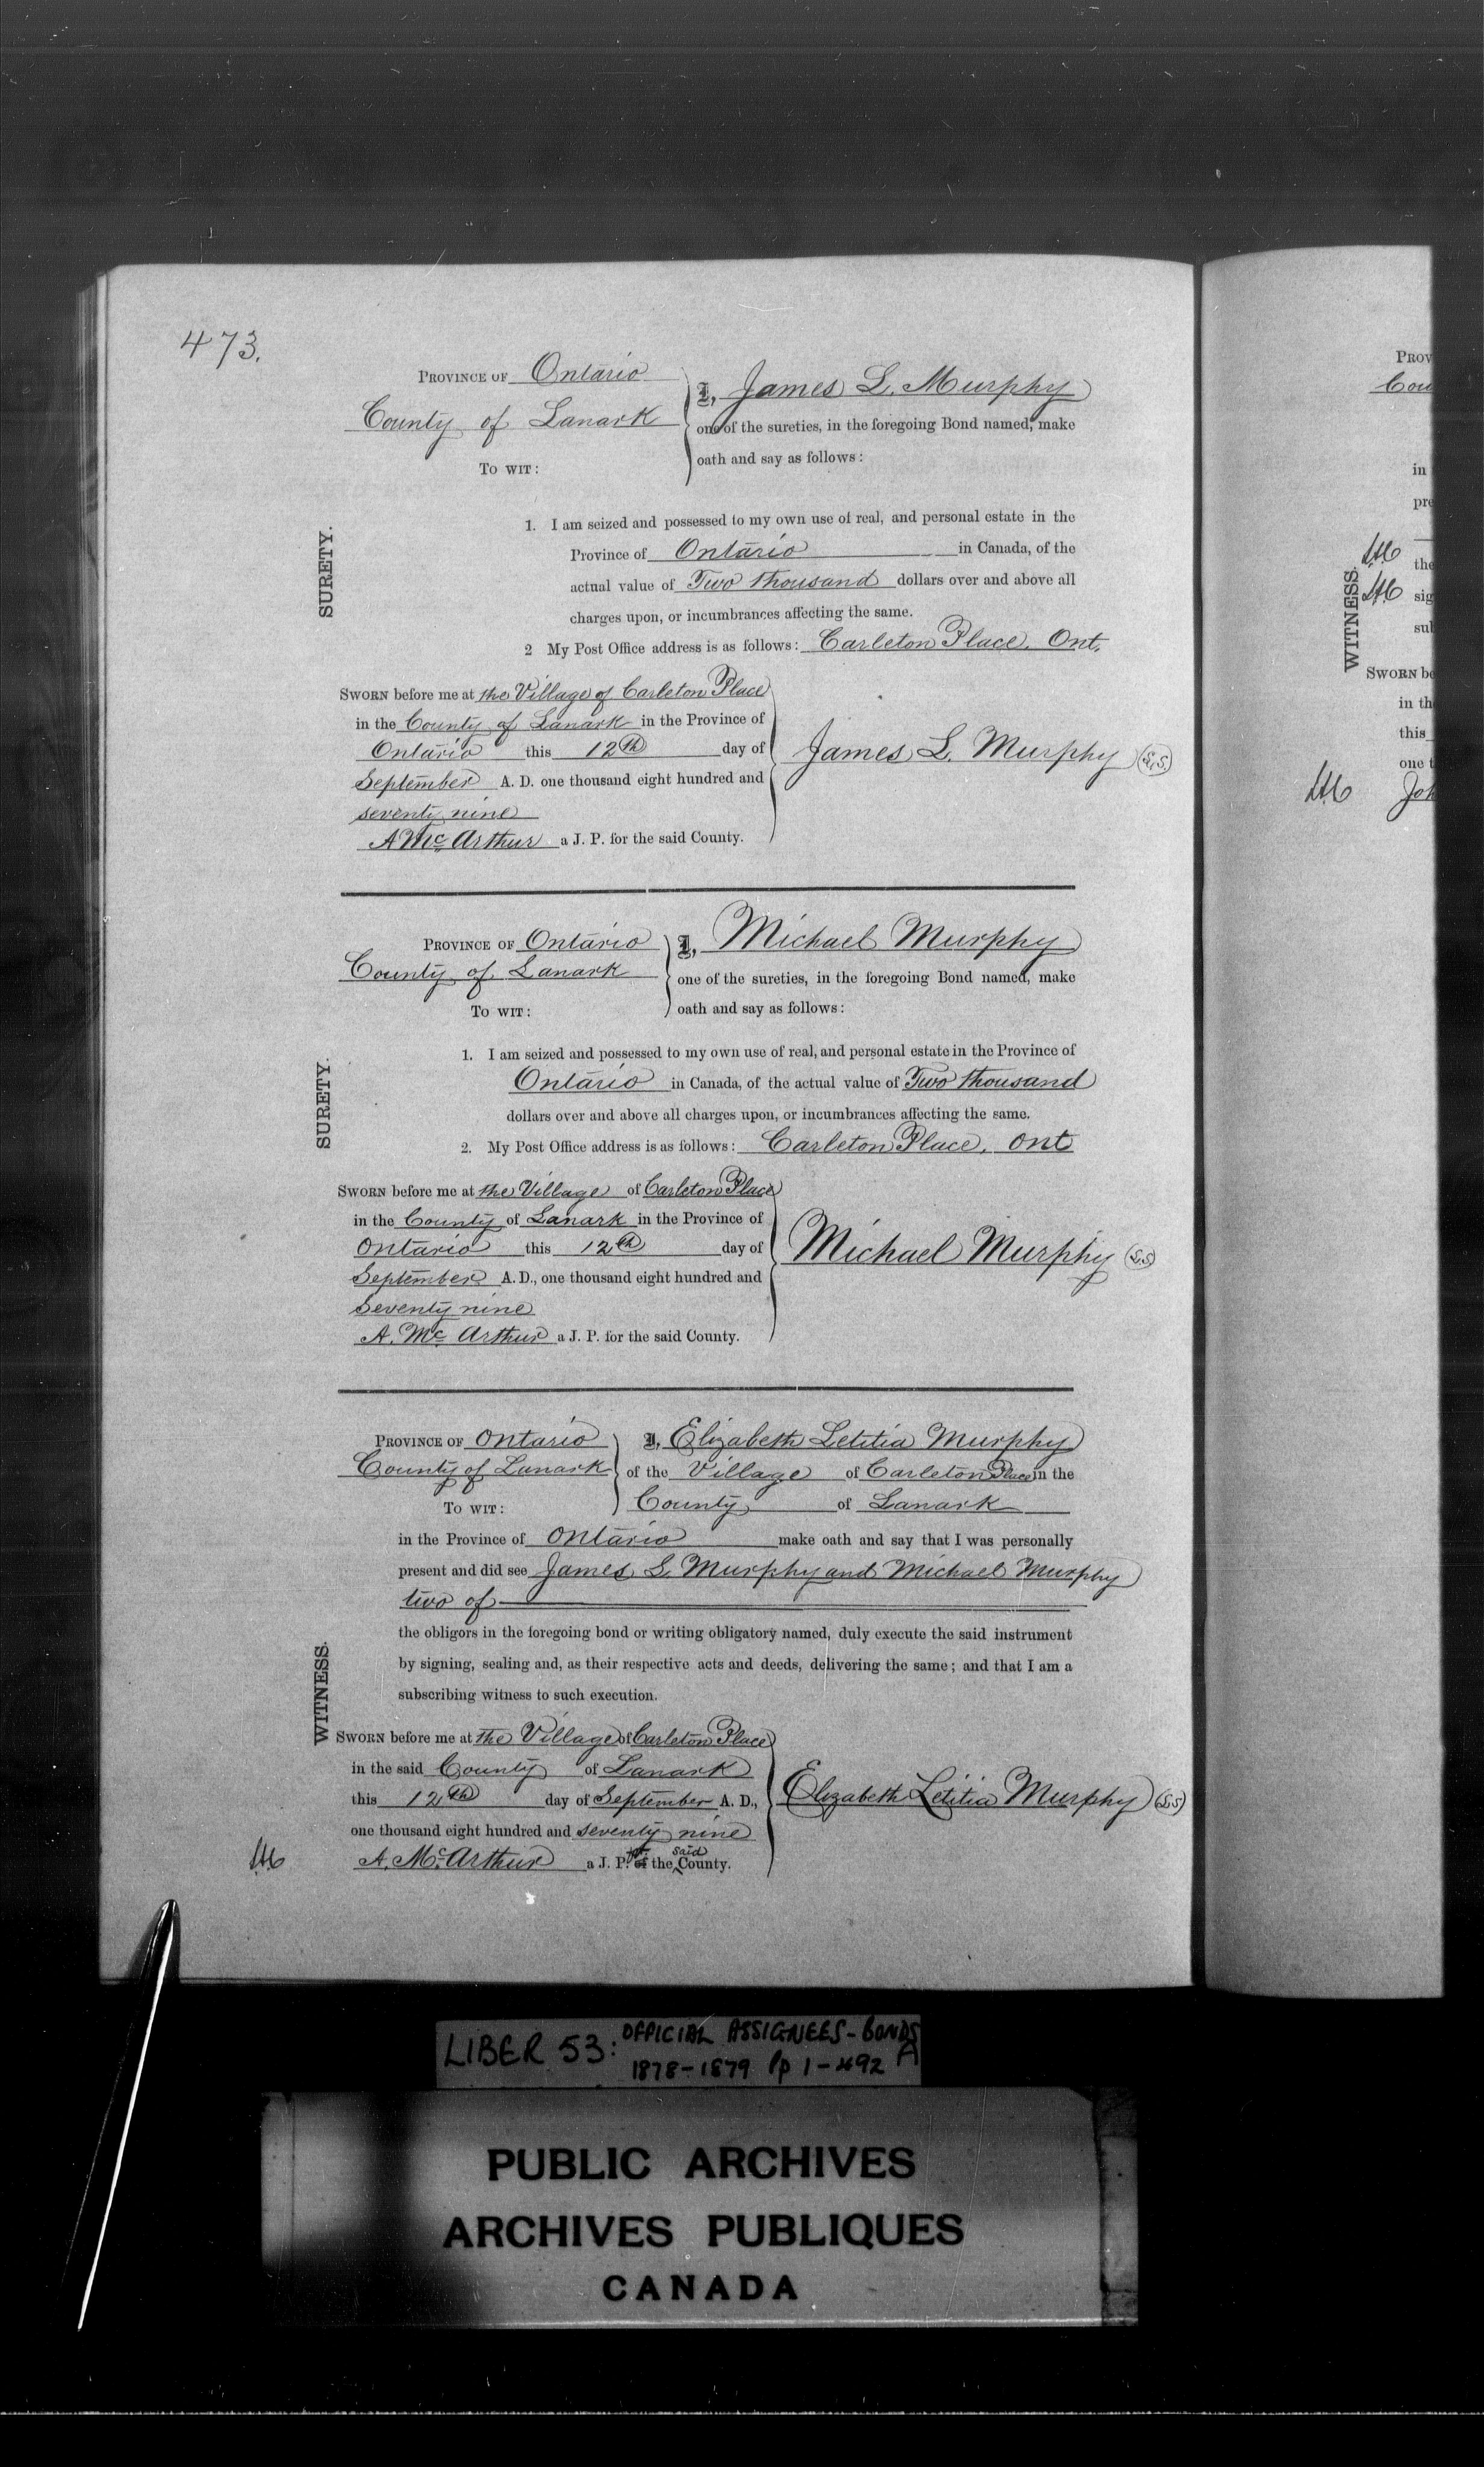 473.
PROVINCE OF Ontario
County of Lanark
TO WIT:
I, James L. Murphy
one of the sureties, in the foregoing Bond named, make
oath and say as follows:
SURETY.
1. I am seized and possessed to my own use of real, and personal estate in the
Province of Ontario in Canada, of the
actual value of Two thousand dollars over and above all
charges upon, or incumbrances affecting the same.
2 My Post Office address is as follows: Carleton Place. Ont.
SWORN before me at the Village of Carleton Place
in the County of Lanark in the Province of
Ontario this 12th day of
September A. D. one thousand eight hundred and
seventy nine
A McArthur a J. P. for the said County.
James L. Murphy (L.S)
PROVINCE OF Ontario
County of Lanark
TO WIT:
I, Michael Murphy
one of the sureties, in the foregoing Bond named, make
oath and say as follows:
SURETY.
1. I am seized and possessed to my own use of real, and personal estate in the Province of
Ontario in Canada, of the actual value of Two thousand
dollars over and above all charges upon, or incumbrances affecting the same.
2. My Post Office address is as follows: Carleton Place. Ont
SWORN before me at the Village of Carleton Place
in the County of Lanark in the Province of
Ontario this 12th day of
September A. D., one thousand eight hundred and
Seventy nine
A. McArthur a J. P. for the said County.
Michael Murphy (L.S)
PROVINCE OF Ontario
County of Lanark
TO WIT:
I, Elizabeth Letitia Murphy
of the Village of Carleton Place in the
County of Lanark
in the Province of Ontario make oath and say that I was personally
present and did see James L Murphy and Michael Murphy
two of
the obligors in the foregoing bond or writing obligatory named, duly execute the said instrument
by signing, sealing and, as their respective acts and deeds, delivering the same; and that I am a
subscribing witness to such execution.
WITNESS.
SWORN before me at the Village of Carleton Place
in the said County of Lanark
this 12th day of September A. D.,
one thousand eight hundred and seventy nine
A. McArthur a J. P. for the said County.
Elizabeth Letitia Murphy (L.S)
PROV
Cou
in
pre
the
sig
sub
WITNESS.
SWORN be
in th
this
one t
Joh
LIBER 53: OFFICIAL ASSIGNEES - BONDS
1878-1879 pp 1-492 A
PUBLIC ARCHIVES
ARCHIVES PUBLIQUES
CANADA